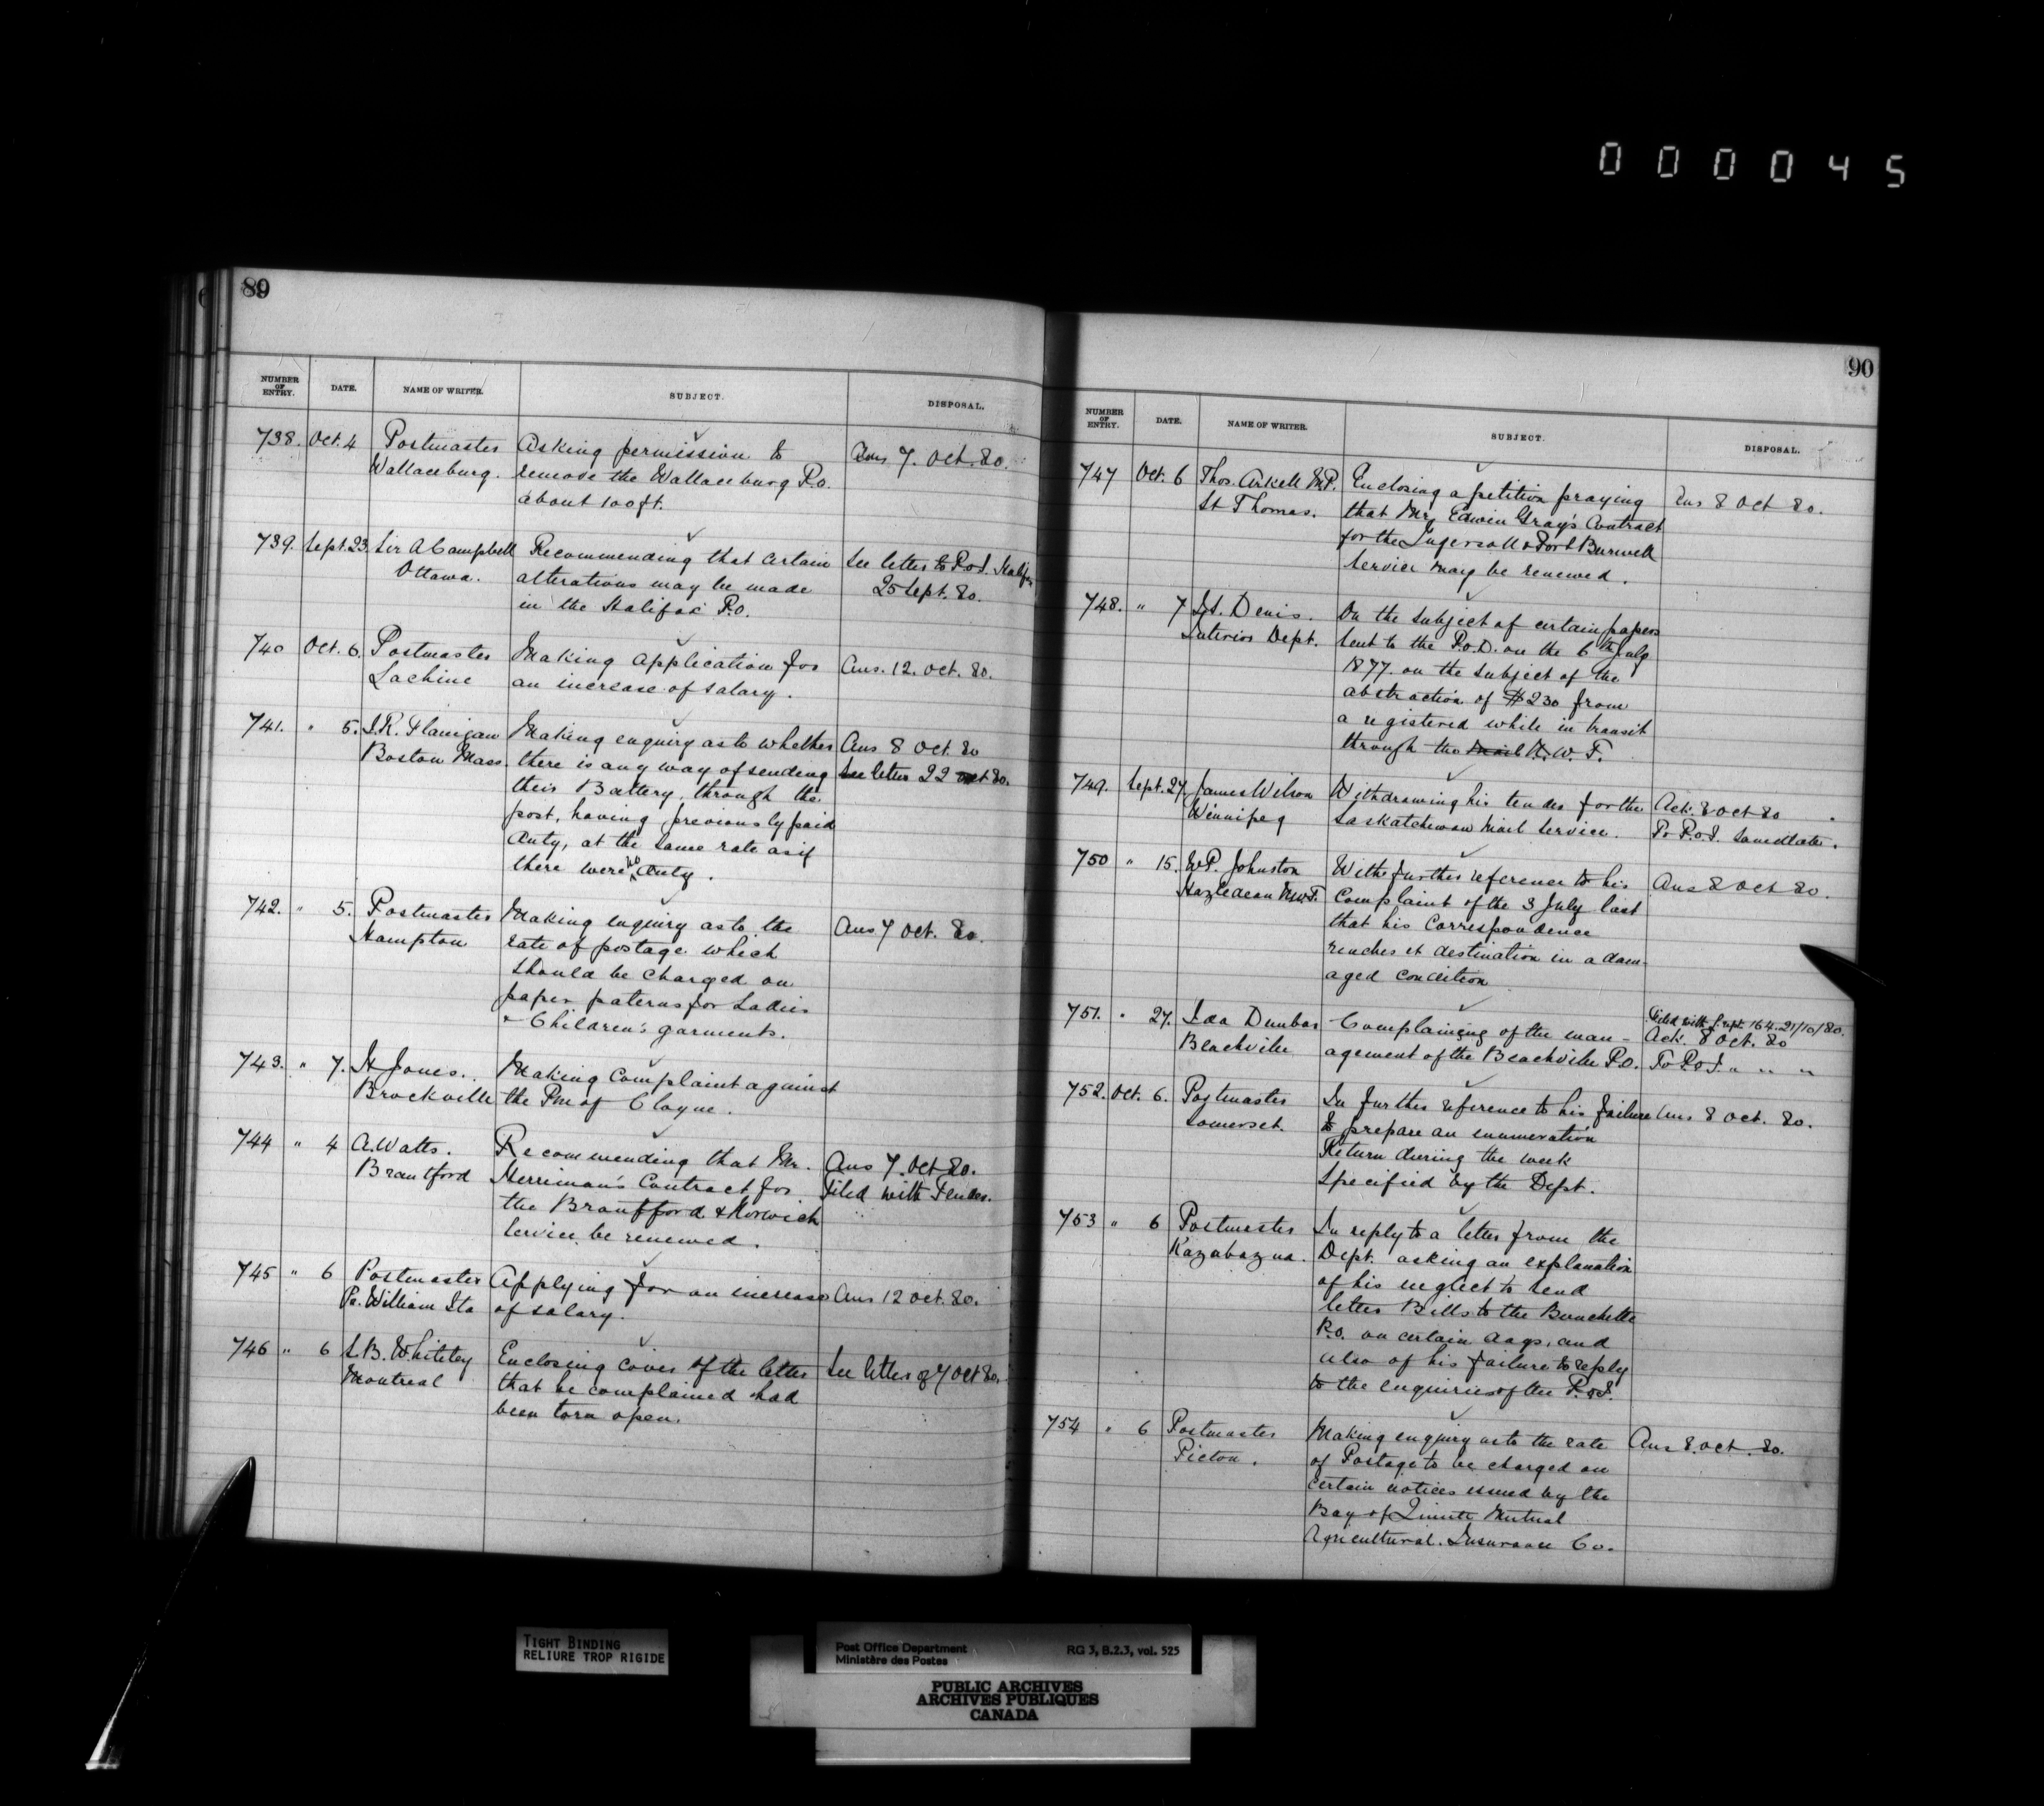 000045
89
NUMBER OF ENTRY. DATE. NAME OF WRITER. SUBJECT. DISPOSAL.
738. Oct. 4 Postmaster Asking permission to Ans 7. Oct. 80.
Wallaceburg. remove the Wallaceburg P.O.
about 100 ft.
739. Sept. 23. Sir A Campbell Recommending that certain See letter to P.O.I. Halifax
Ottawa. alterations may be made 25 Sept. 80.
in the Halifax P.O.
740 Oct. 6. Postmaster Making application for Ans. 12. Oct. 80.
Lachine an increase of salary.
741. " 5. J.R. Flanigan Making enquiry as to whether Ans 8 Oct. 80
Boston Mass. there is any way of sending See letter 22 Oct 80.
their Battery through the
post, having previously paid
duty, at the same rate as if
there were no duty.
742. " 5. Postmaster Making enquiry as to the Ans 7 Oct. 80.
Hampton rate of postage which
should be charged on
paper paterns for Ladies
& Children's garments.
743. " 7. H Jones. Making Complaint against
Brockville the Pm of Cloyne.
744 " 4 A. Watts. Recommending that Mr. Ans 7. Oct 80.
Brantford Merriman's Contract for Filed with Tender.
the Brantford & Norwich
Service be renewed.
745 " 6 Postmaster Applying for an increase Ans 12 Oct. 80.
Pr. William Sta of salary.
746 " 6 S.B. Whiteley Enclosing cover of the letter See letter of 7 Oct 80.
Montreal that he complained had
been torn open.
90
NUMBER OF ENTRY. DATE. NAME OF WRITER. SUBJECT. DISPOSAL.
747 Oct. 6 Thos. Arkell M.P. Enclosing a petition praying Ans 8 Oct 80.
St Thomas. that Mr Edwin Gray's Contract
for the Ingersoll & Port Burwell
Service may be renewed.
748. " 7 Denis. On the subject of certain papers
Interior Dept. sent to the P.O.D. on the 6th July
1877. on the subject of the
abstraction of $230 from
a registered while in transit
through the Mail N.W.T.
749. Sept. 27. James Wilson Withdrawing his tender for the Ack. 8 Oct 80
Winnipeg Saskatchewan Mail Service. To P.O.I. same date.
750 " 15. W.P. Johnston With further reference to his Ans 8 Oct 80.
Hazledean N.W.T. Complaint of the 3 July last
that his Correspondence
reaches it destination in a dam-
aged condition
751. " 27. Ida Dunbar Complaining of the man- Filed with 164. 21/10/80.
Ack. 8 Oct. 80
Beachville agement of the Beachville P.O. To P.O.I. " " "
752. Oct. 6. Postmaster In further reference to his failure Ans 8 Oct. 80.
Somerset. to prepare an enumeration
Return during the week
specified by the Dept.
753 " 6 Postmaster In reply to a letter from the
Kazabazua. Dept. asking an explanation
of his neglect to send
letter Bills to the
P.O. on certain days, and
also of his failure to reply
to the enquiries of the P.O.I.
754 " 6 Postmaster Making enquiry as to the rate Ans 8. Oct. 80.
Picton. of Postage to be charged on
certain notices issued by the
Bay of Quinte Mutual
Agricultural Insurance Co.
TIGHT BINDING
RELIURE TROP RIGIDE
Post Office Department RG 3, B.2.3, vol. 525
Ministère des Postes
PUBLIC ARCHIVES
ARCHIVES PUBLIQUES
CANADA